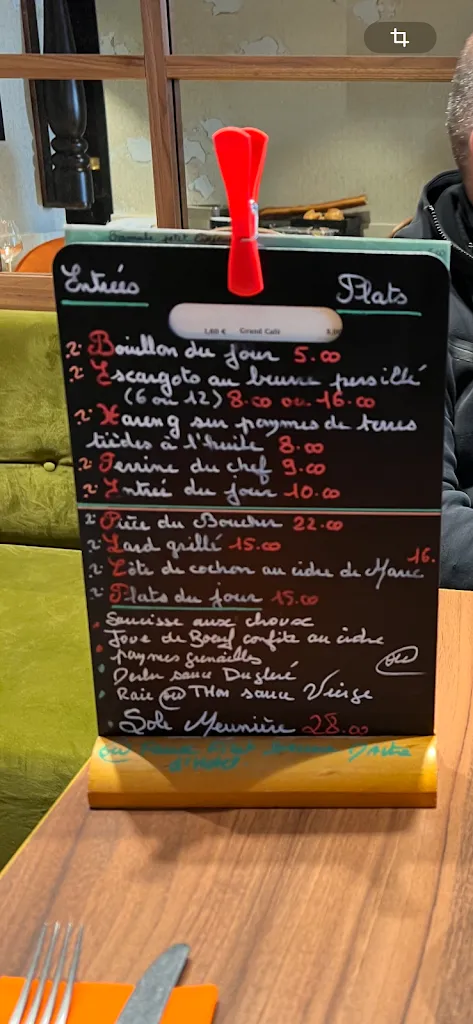 Entrées
Plats
1,60 € Grand Café
Bouillon du jour 5.00
Escargots au beurre persillé
(6 ou 12) 8.00 ou 16.00
Hareng sur pommes de terres
tièdes à l'huile 8.00
Terrine du chef 9.00
Entrée du jour 10.00
Pièce du Boucher 22.00
Lard grillé 15.00
16.
Côte de cochon au cidre de Marc
Plats du jour 15.00
Saucisse aux choux
Joue de Boeuf confite au cidre
pommes grenailles
ou
sauce Dugléré
Raie ou Thon sauce Vierge
Sole Meunière 28.00
ou